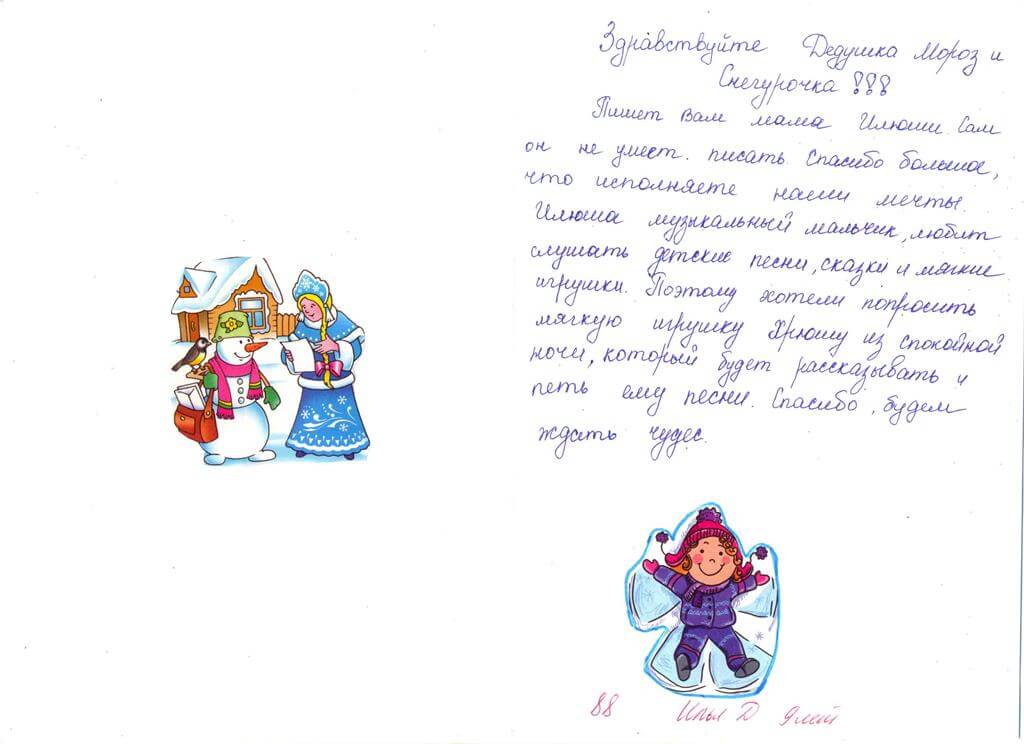 Здравствуйте Дедушка Мороз и
Снегурочка !!!
Пишет Вам мама Илюши. Сам
он не умеет. писать. Спасибо большое,
что исполняете наши мечты.
Илюша музыкальный мальчик, любит
слушать детские песни, сказки и мягкие
игрушки. Поэтому хотели попросить
мягкую игрушку Хрюшу из спокойной
ночи, который будет рассказывать и
петь ему песни. Спасибо, будем
ждать чудес.
88 Илья Д 9 лет